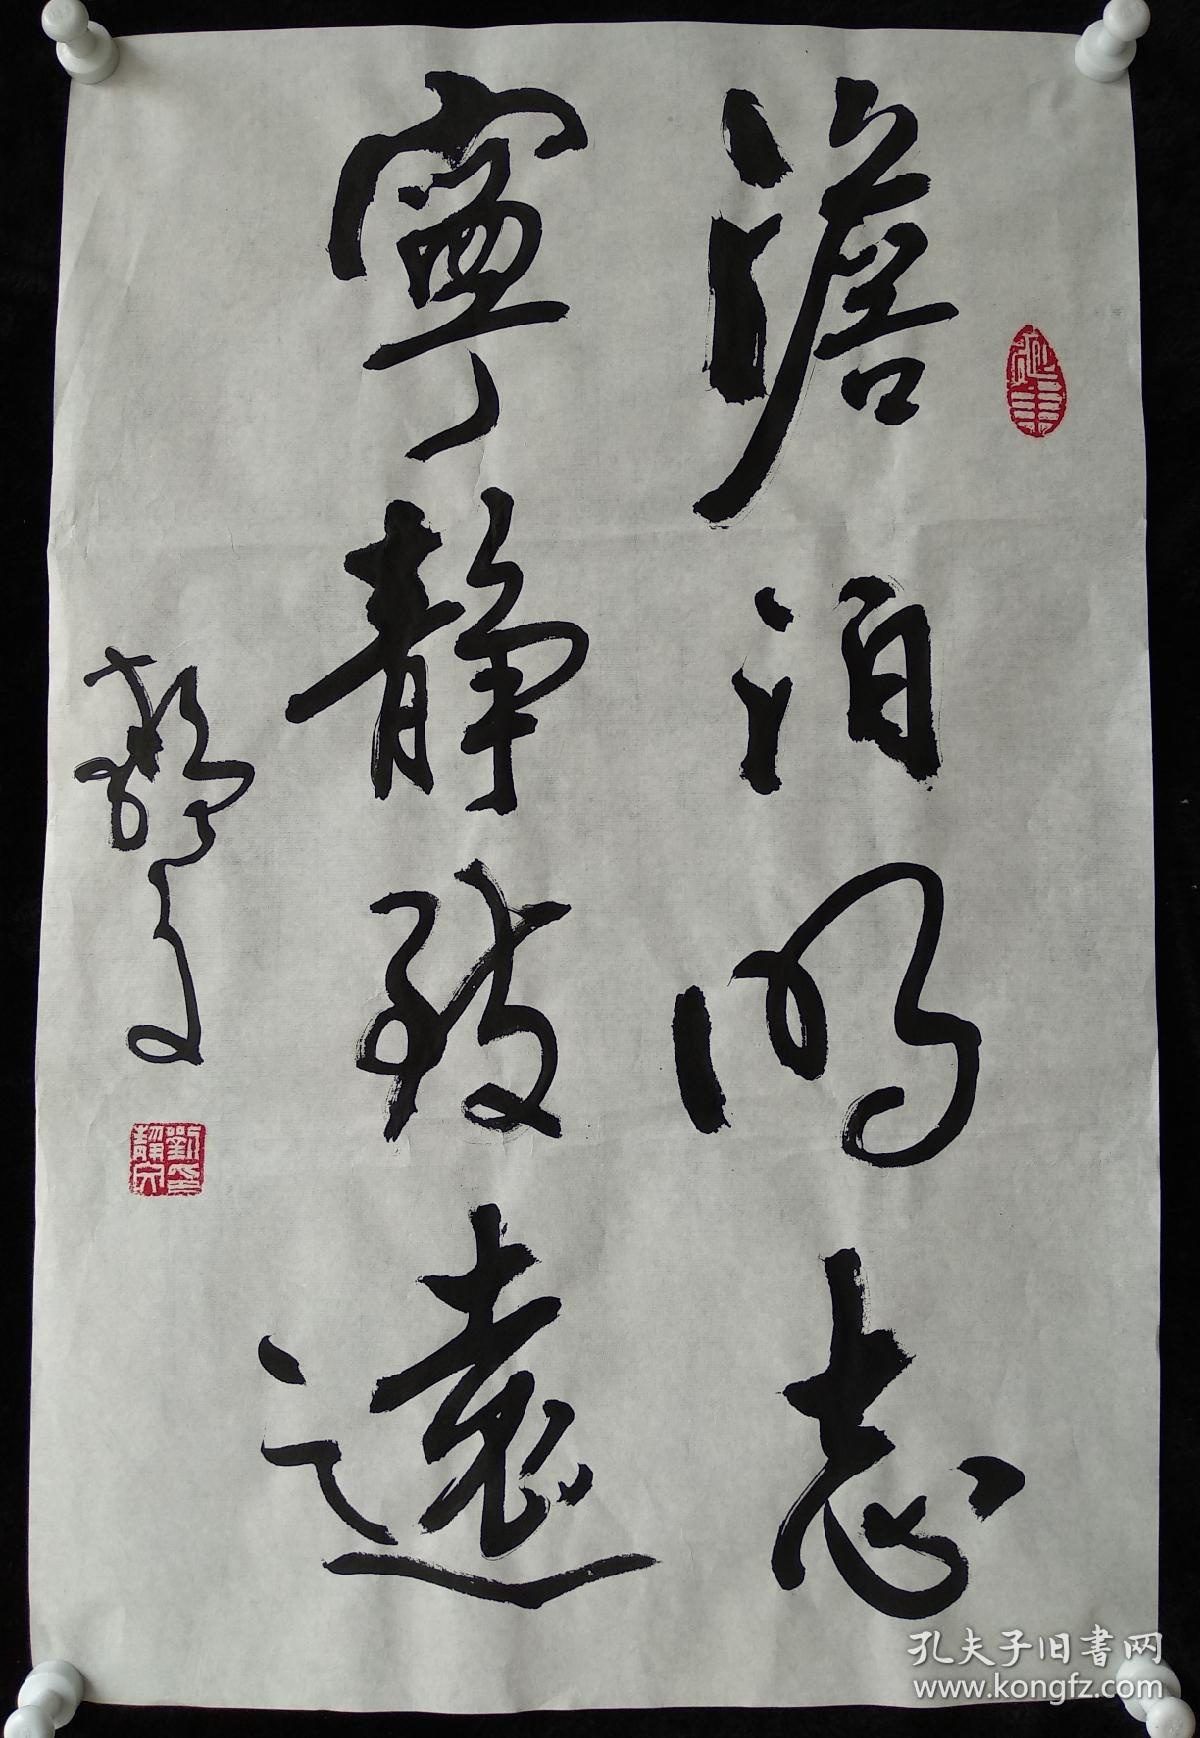 澹泊明志
寧靜致遠
孔夫子旧書网
www.kongfz.com